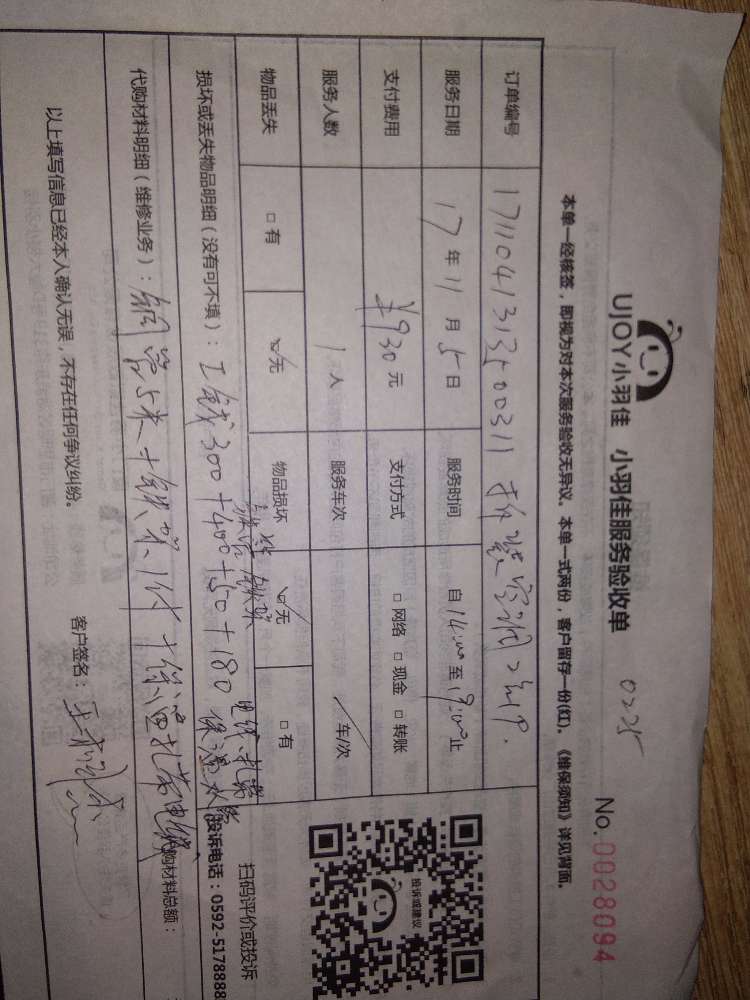 UJOY小羽佳 小羽佳服务验收单
0225
No.0028094
本单一经核签，即视为对本次服务验收无异议。本单一式两份，客户留存一份(红)。《维保须知》详见背面。
订单编号 1711041313500311 拆装空调2部.
服务日期 17年11月5日 服务时间 自14:00至19:00止
支付费用 ￥930元 支付方式 □网络 □现金 □转账
服务人数 1人 服务车次 车/次
物品丢失 □有 ☑无 物品损坏 ☑无 □有
投诉或建议
扫码评价或投诉
投诉电话：0592-5178888
铜管 铁架 电线、扎带
损坏或丢失物品明细（没有可不填）：工钱300+400+50+180 保温
代购材料明细（维修业务）：铜管5米+铁架1付+保温扎带电线
代购材料总额：
以上填写信息已经本人确认无误，不存在任何争议纠纷。
客户签名：